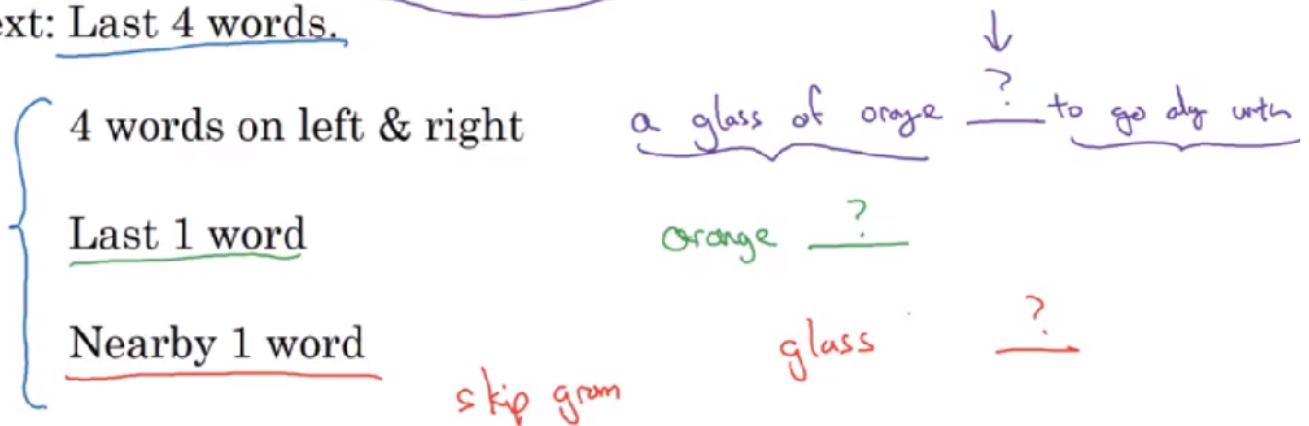 ext: Last 4 words.
4 words on left & right a glass of orage ? to go alg with
Last 1 word orange ?
Nearby 1 word glass ?
skip gram